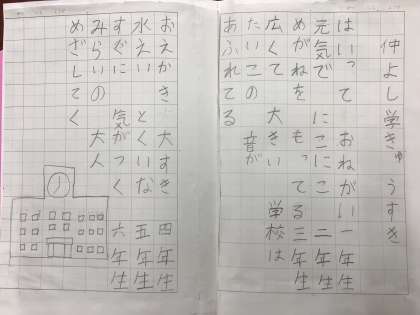 仲よし学きゅうすき
はいって おねがい 一年生
元気で にこにこ 二年生
めがねを もってる 三年生
広くて 大きい 学校は
たいこの 音が
あふれてる
おえかき 大すき 四年生
水えい とくいな 五年生
すぐに 気がつく 六年生
みらいの 大人
めざしてく